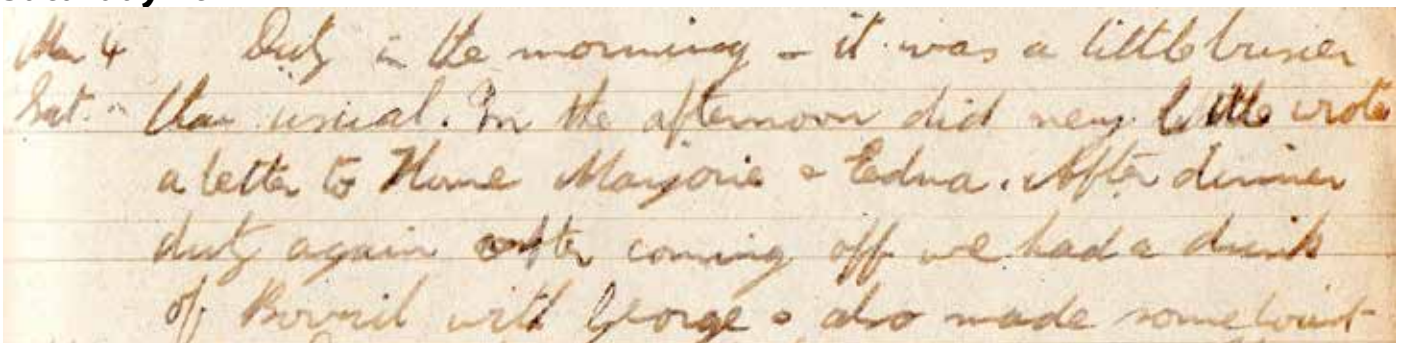 Mar 4 Duty in the morning - it was a little busier
Sat. than usual. In the afternoon did very little wrote
a letter to Home Marjorie & Edna. After dinner
duty again after coming off we had a drink
of Bovril with George & also made some toast